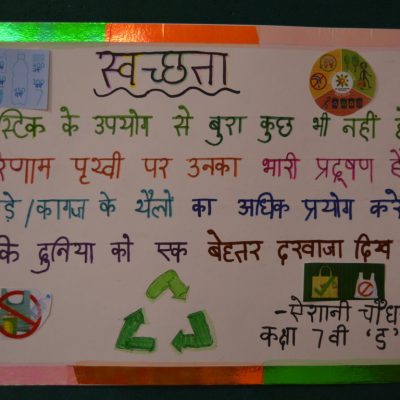 स्वच्छता
स्टिक के उपयोग से बुरा कुछ भी नही
पृथ्वी पर उनका भारी प्रदूषण
ड़े/कागज के थैलो का अधिक प्रयोग करे
कि दुनिया को एक बेहतर दरवाजा दिख
-ऐशानी
कक्षा 7 वी 'ड'